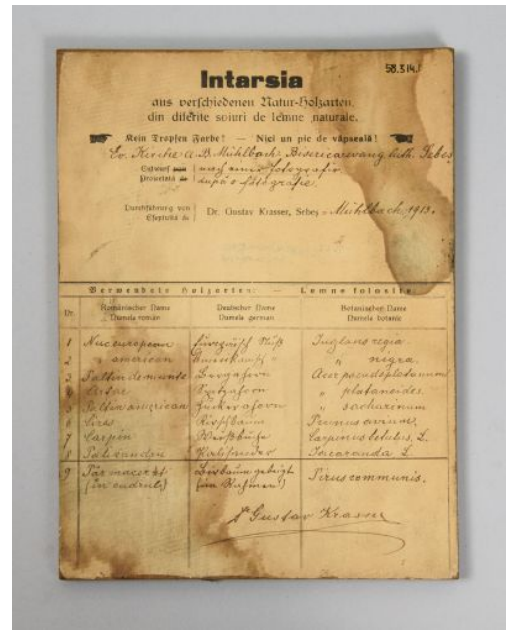 58.314.
Intarsia
aus verschiedenen Natur-Holzarten.
din diferite soiuri de lemne naturale.
Kein Tropfen Farbe! — Nici un pic de văpseală!
Ev. Kirche A. B. Mühlbach. Biserica evang. luth. Sebeș
Entwurf nach einer Fotografie
Proiectată după o fotografie.
Durchführung von
Efeptuită de
Dr. Gustav Krasser, Sebeș - Mühlbach, 1913.
Verwendete Holzarten: — Lemne folosite:
Nr. Rumänischer Name Deutscher Name Botanischer Name
Numele român Numele german Numele botanic
1 Nuc european Juglans regia
2 " american " " nigra.
3 Paltin de munte Bergahorn Acer pseudoplatanus
4 Arțar Spitzahorn " platanoides
5 Paltin american Zuckerahorn " sacharinum
6 Cireș Kirschbaum Prunus avium,
7 Carpin Weißbuche Carpinus betulus, L.
8 Palisandru Jacaranda, L.
9 Păr macerat Birnbaum gebeizt Pirus communis.
(în cadrul) (im Rahmen)
Dr Gustav Krasser